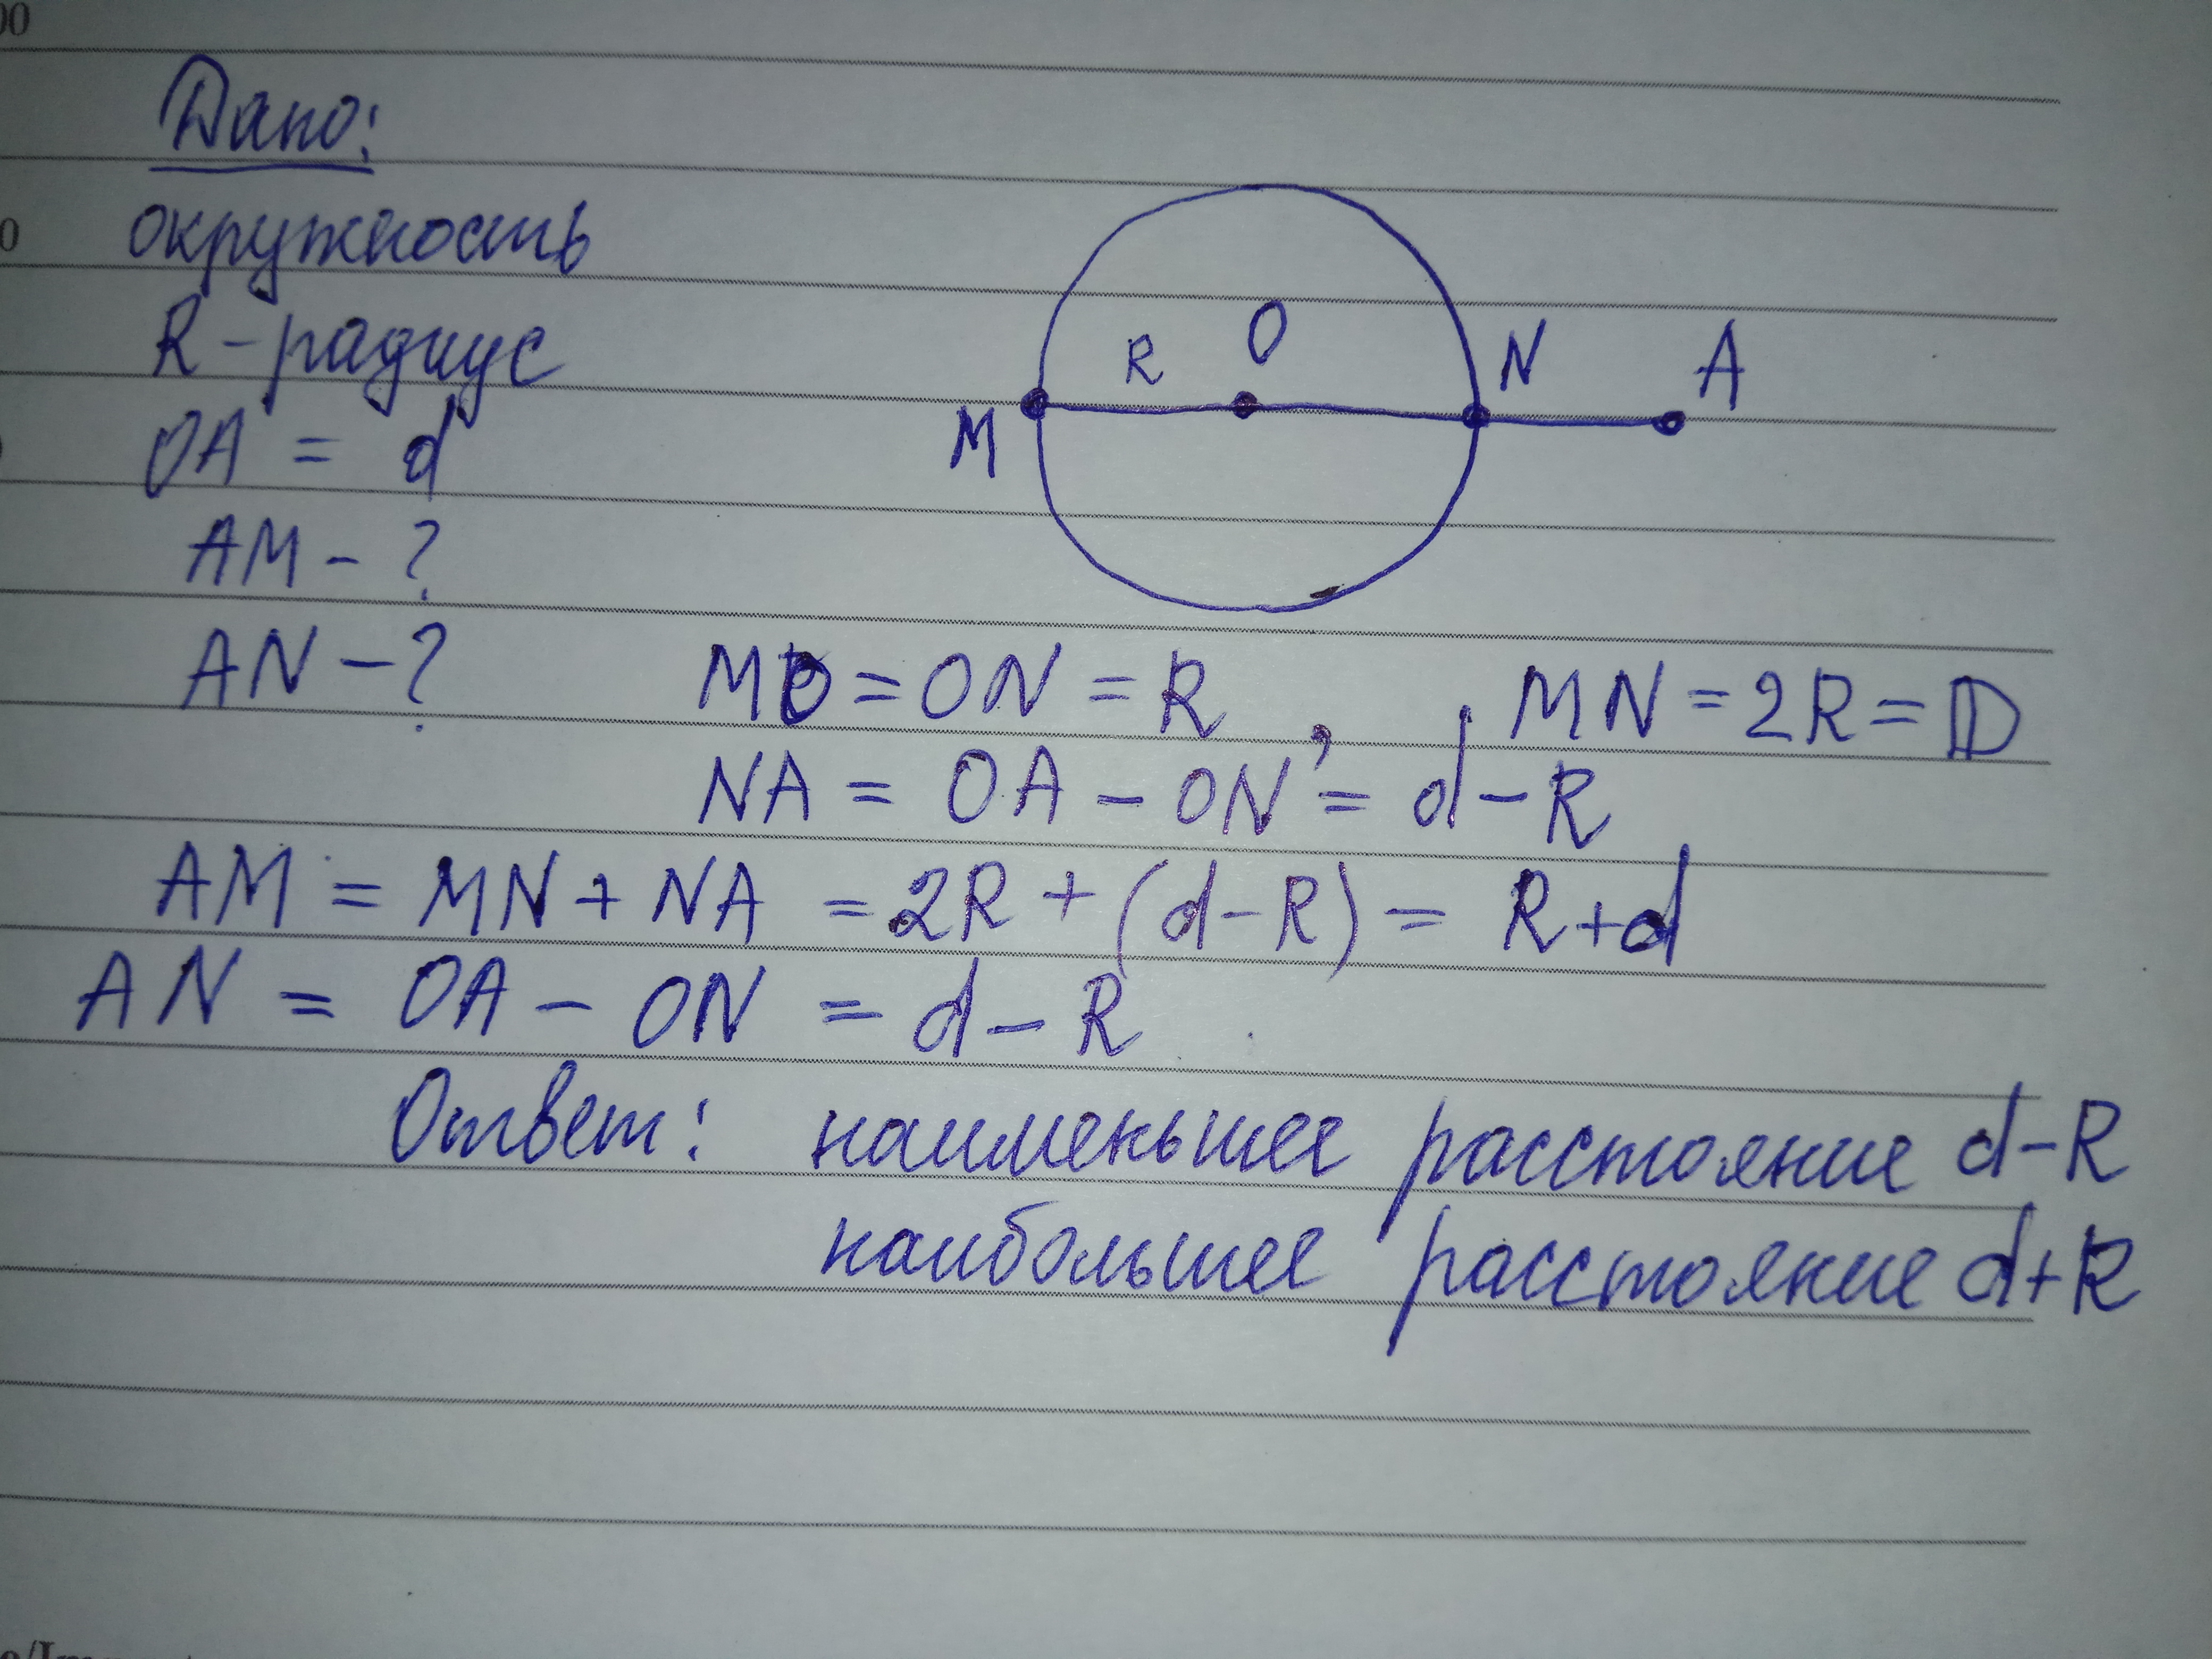 00
Дано:
окружность
0
R - радиус
OA = d
AM - ?
AN - ?
R
O
N
A
M
MO = ON = R , MN = 2R = D
NA = OA - ON = d - R
AM = MN + NA = 2R + (d - R) = R + d
AN = OA - ON = d - R
Ответ: наименьшее расстояние d - R
наибольшее расстояние d + R